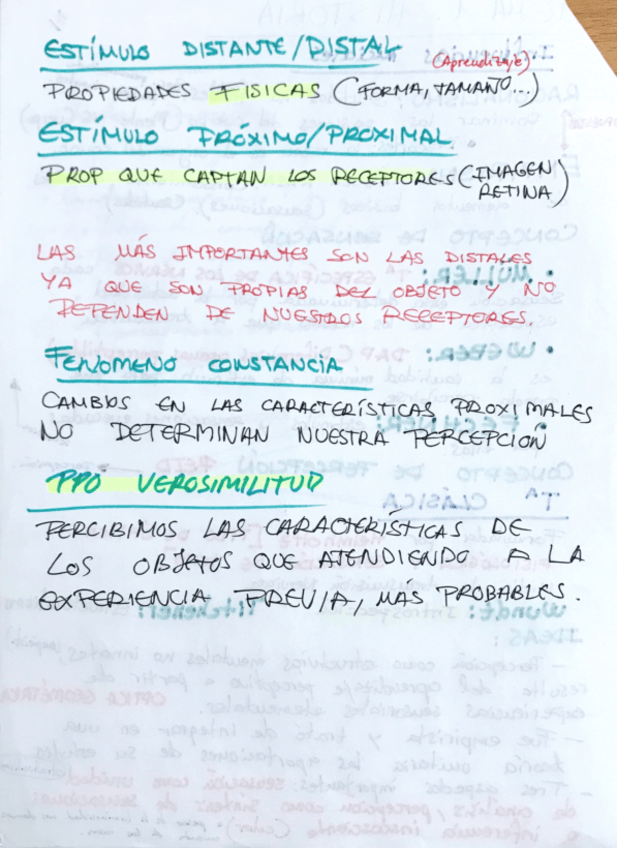 ESTÍMULO DISTANTE/DISTAL (Aprendizaje)
PROPIEDADES FISICAS (FORMA, TAMAÑO...)
ESTÍMULO PRÓXIMO/PROXIMAL
PROP QUE CAPTAN LOS RECEPTORES (IMAGEN
RETINA)
LAS MÁS IMPORTANTES SON LAS DISTALES
YA QUE SON PROPIAS DEL OBJETO Y NO
DEPENDEN DE NUESTROS RECEPTORES.
FENOMENO CONSTANCIA
CAMBIOS EN LAS CARACTERÍSTICAS PROXIMALES
NO DETERMINAN NUESTRA PERCEPCIÓN
PPO VEROSIMILITUD
PERCIBIMOS LAS CARACTERÍSTICAS DE
LOS OBJETOS QUE ATENDIENDO A LA
EXPERIENCIA PREVIA, MÁS PROBABLES.